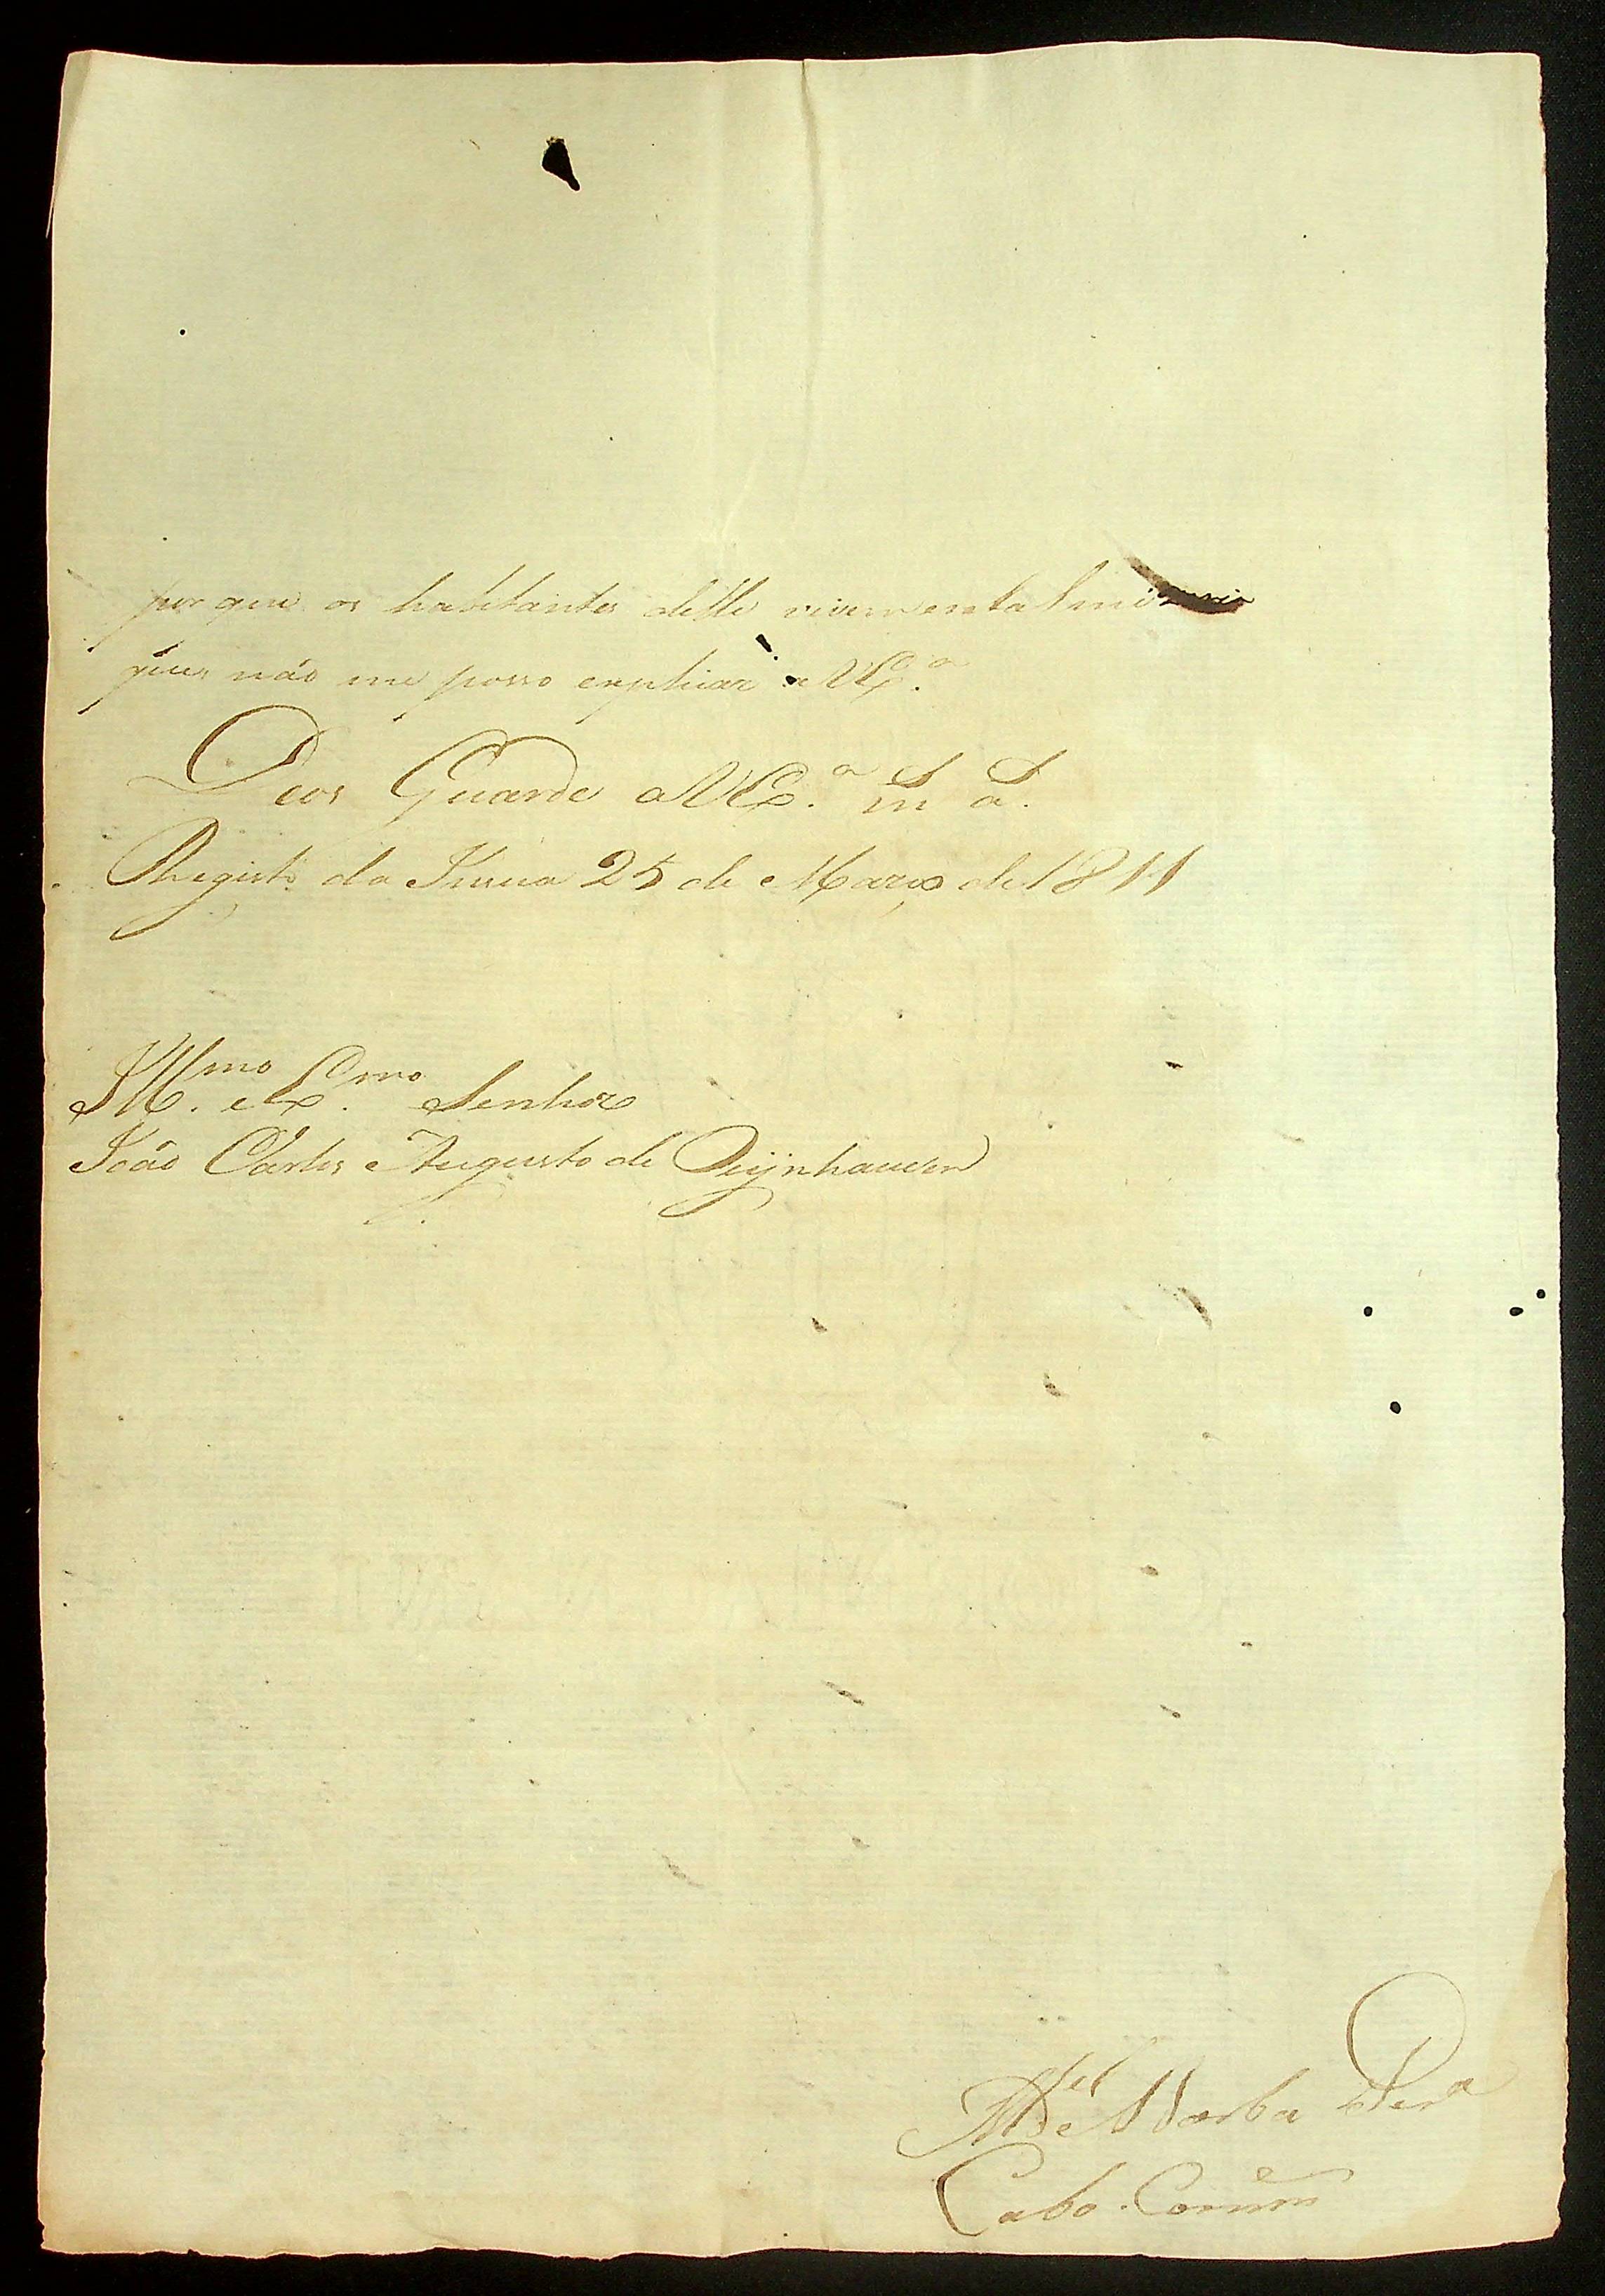 por que os habitantes delle vivem em tal mizeria
que não me posso explicar a VEx.ª
Deos Guarde a VEx.ª m a.
Registo da Insua 25 de Março de 1811
Ill.mo e Ex.mo Senhor
João Carlos Augusto de Oeijnhausen
M.el de Barba Per.a
Cabo Com.e